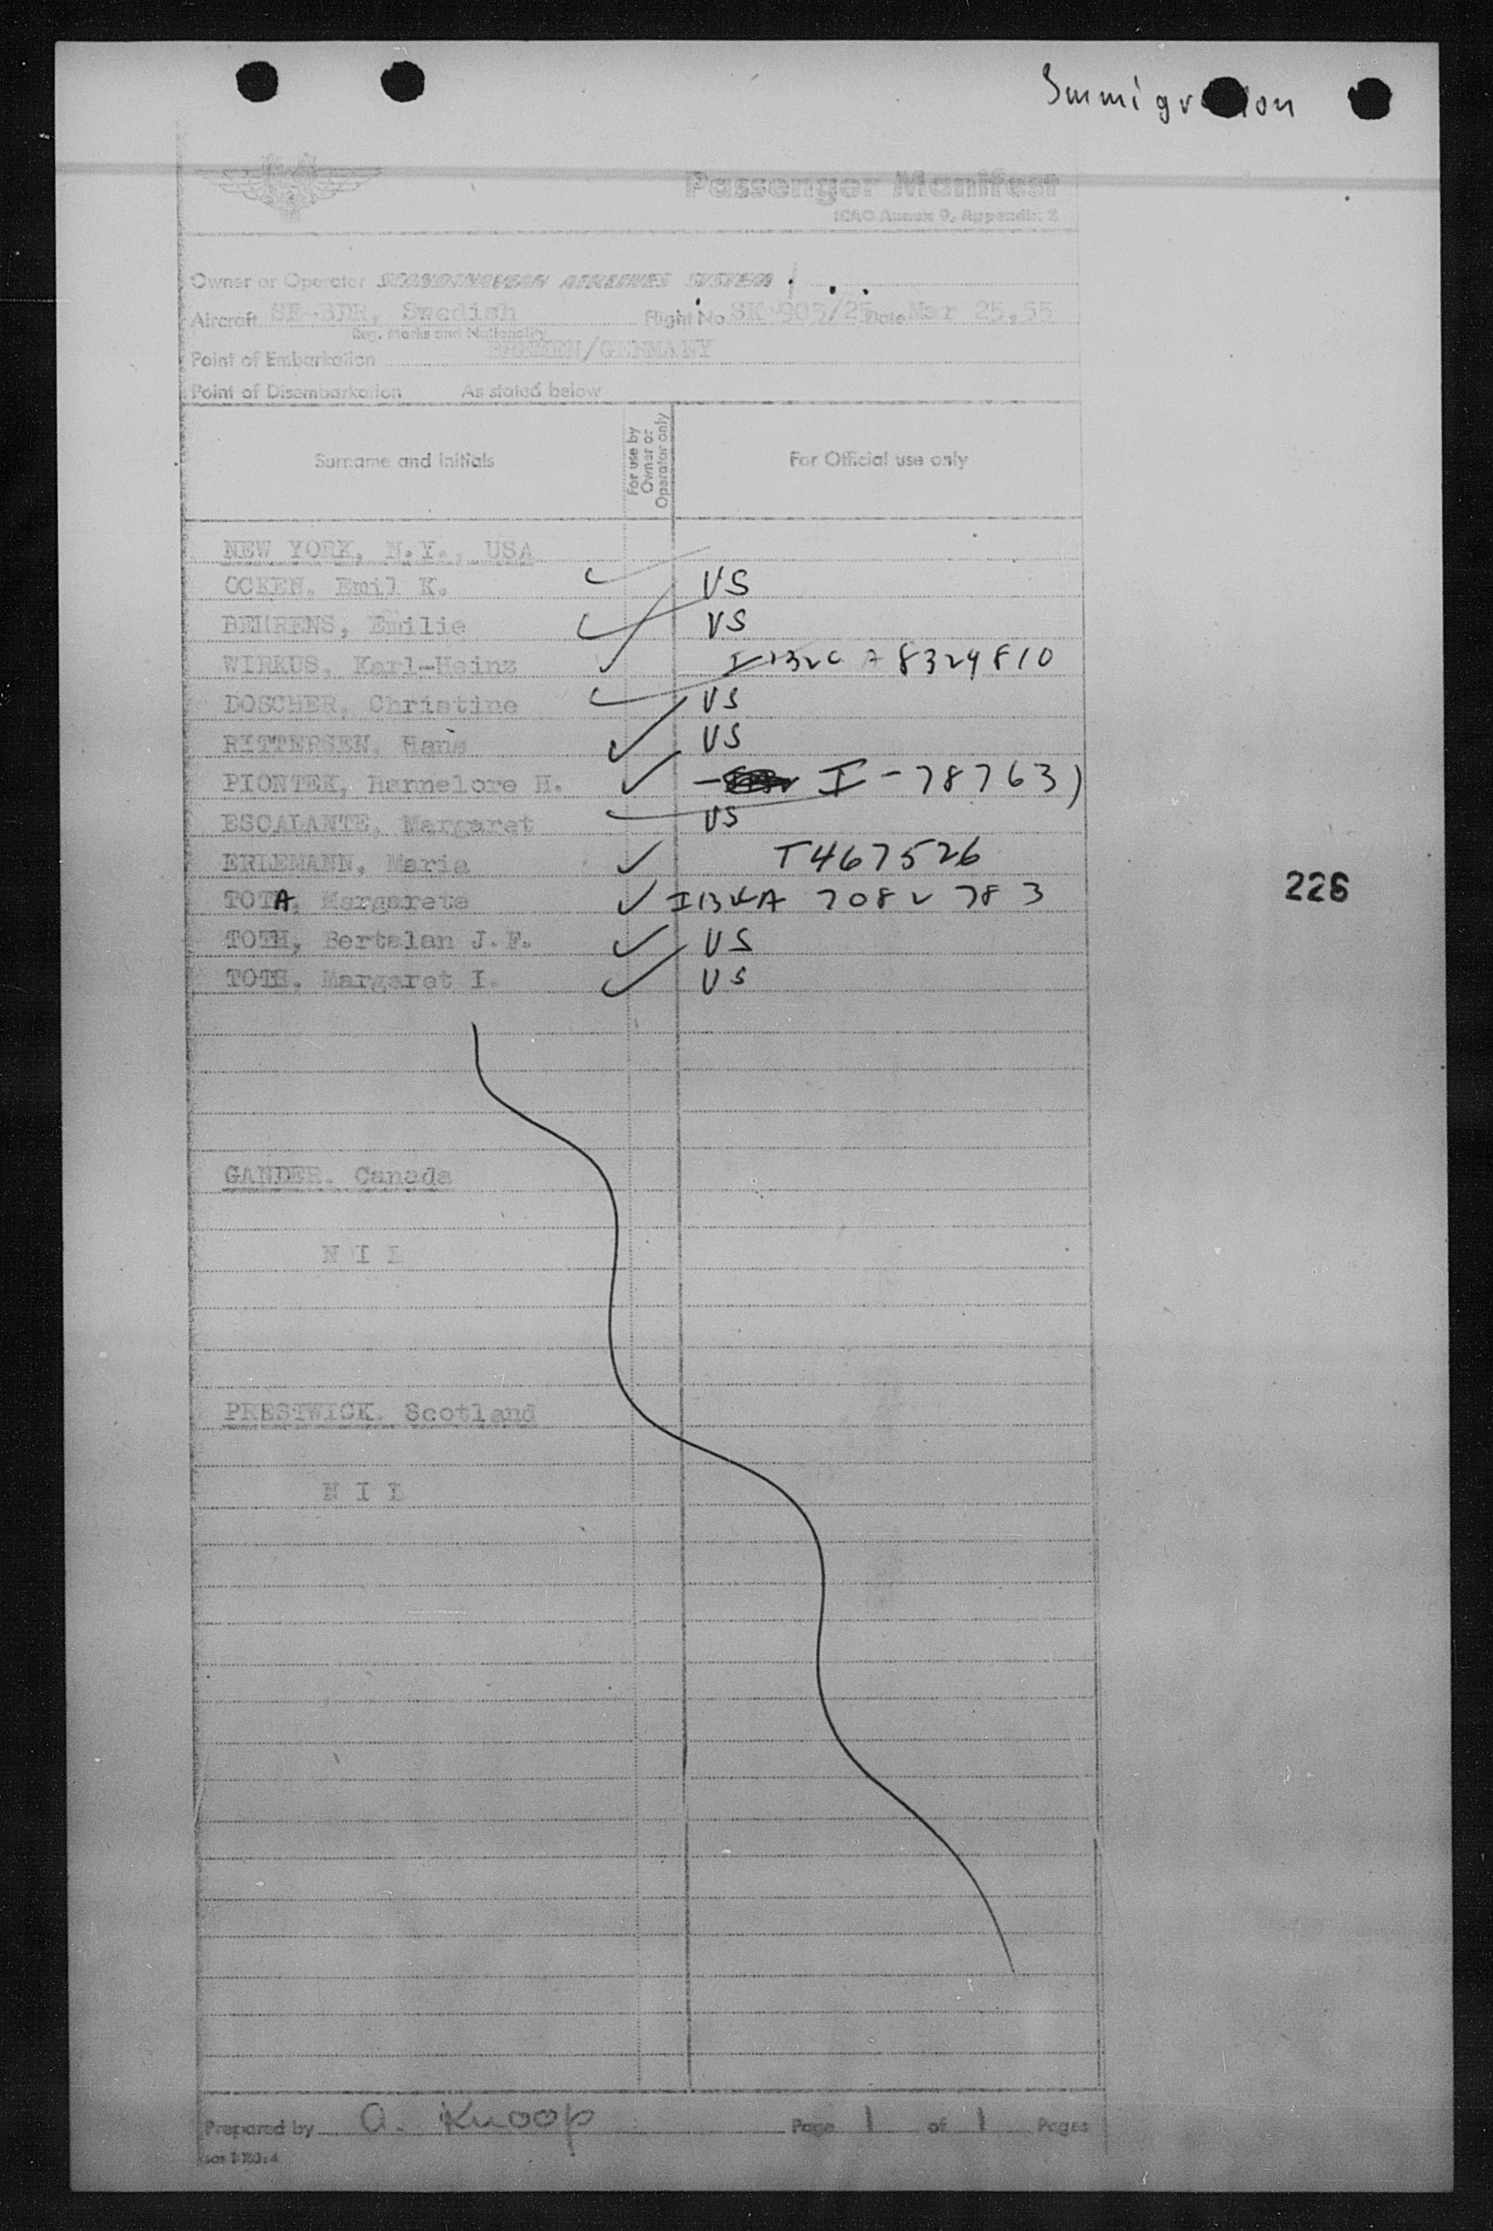 Immigration
Passenger Manifest
ICAO Annex 9, Appendix 2
Owner or Operator SCANDINAVIAN AIRLINES SYSTEM
Aircraft SE-BDR, Swedish Flight No SK 905/25 Date Mar 25,55
Reg. Marks and Nationality
Point of Embarkation BREMEN/GERMANY
Point of Disembarkation As stated below
Surname and Initials For use by Owner or Operator only For Official use only
NEW YORK, N.Y., USA
OCKEN, Emil K. US
BEHRENS, Emilie US
WIRKUS, Karl-Heinz A8324810
DOSCHER, Christine US
RITTERSEN, Hans US
PIONTEK, Hannelore H. I-78763)
ESCALANTE, Margaret US
ERLEMANN, Maria T467526
226
TOTA, Margarete 7082783
TOTH, Bertalan J.F. US
TOTH, Margaret I. US
GANDER, Canada
N I L
PRESTWICK, Scotland
N I L
Prepared by A. Knoop Page 1 of 1 Pages